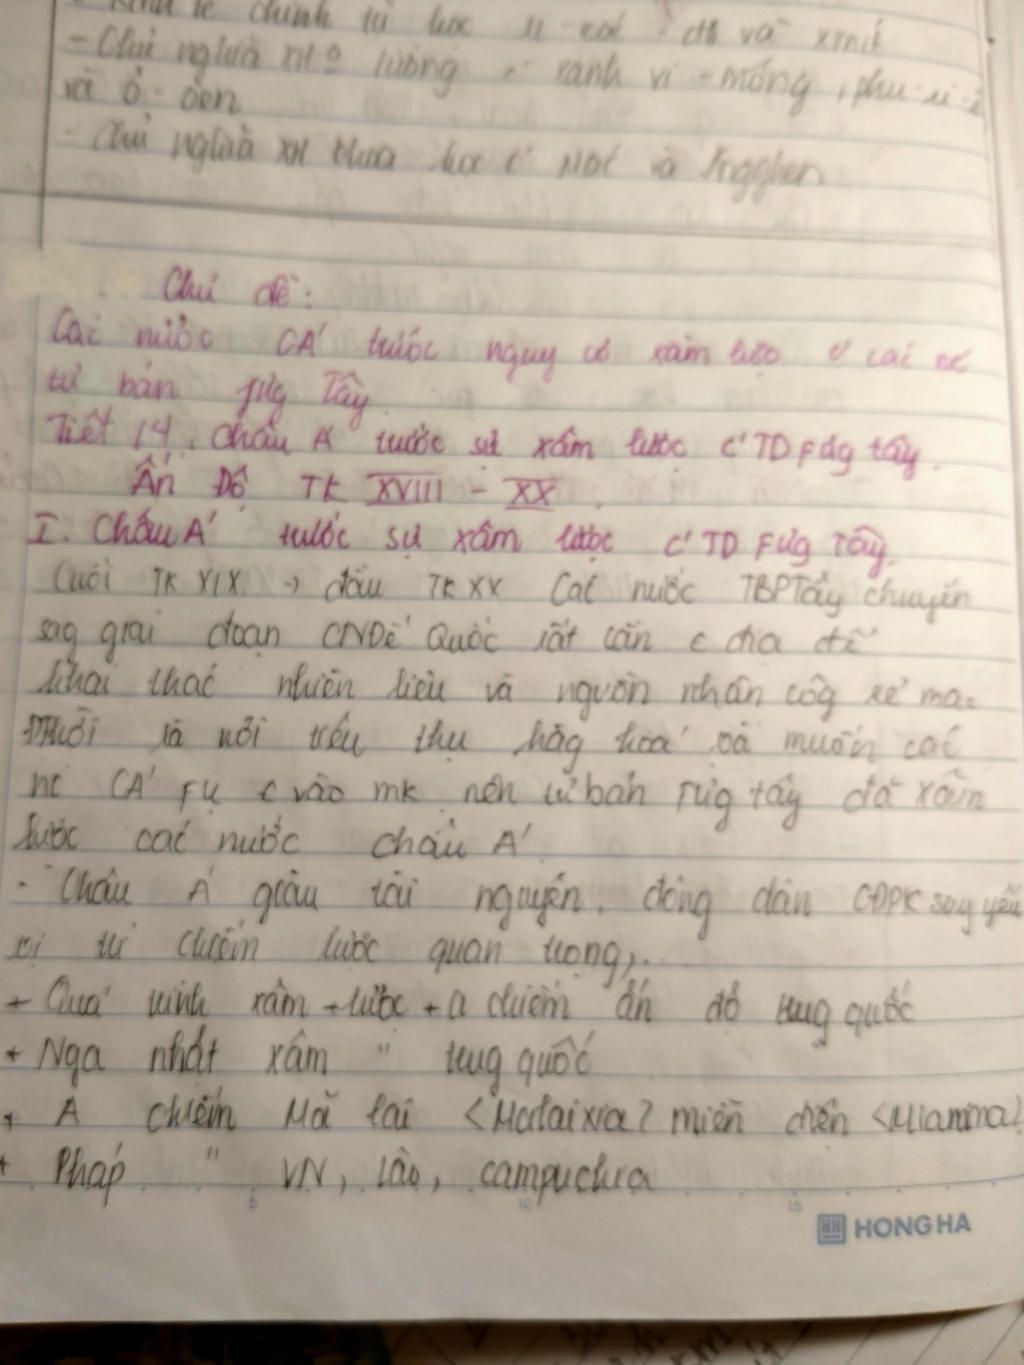 Kinh tế chính tị học xmit
- Chủ nghĩa lưỡng xanh xi - mông, phu-ri-ê
và ô-oen
- Chủ nghĩa XH khoa học c' Mác và Ăngghen
Chủ đề:
Các nước CÁ trước nguy cơ xâm lược c' các nc
tư bản fựg Tây
Tiết 14. Châu Á trước sự xâm lược c' TD Fựg tây.
Ấn Độ TK XVIII - XX.
I. Châu Á trước sự xâm lược c' TD Fựg Tây.
Cuối TK XIX -> đầu TK XX Các nước TBPTây chuyển
sag giai đoạn CNĐế Quốc rất cần c địa để
khai thác nhiên liệu và nguồn nhân côg rẻ mạc
là nơi tiêu thụ hàg hoá và muốn các
nc CÁ Fụ c vào mk nên tư bản Fựg tây đã xâm
lược các nước châu Á.
- Châu Á giàu tài nguyên, đông dân CĐPK say yếu
vị trí chiến lược quan trọng,.
+ Quá trình xâm lược + A chiếm ấn độ trug quốc
+ Nga nhật xâm " trug quốc
+ A chiếm Mã lai <Malaixia> miến điện <Mianma>
+ Pháp " VN, lào, campuchia
5 10 15
HH HONG HA